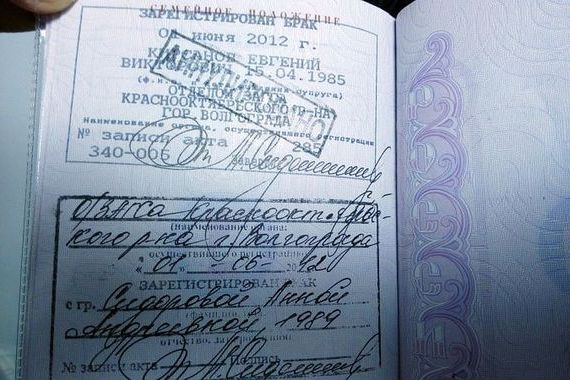 СЕМЕЙНОЕ ПОЛОЖЕНИЕ
ЗАРЕГИСТРИРОВАН БРАК
июня 2012 г.
ЕВГЕНИЙ
15.04.1985
ОТДЕЛОМ
КРАСНООКТЯБРЬСКОГО Р-НА
ГОР. ВОЛГОГРАДА
Наименование органа, осуществившего регистрацию
№ записи акта 285
340-006
О/ЗАГСа Краснооктябрьс-
кого р-на г. Волгограда
(наименование органа,
осуществившего регистрацию)
« 01 » 06
ЗАРЕГИСТРИРОВАН БРАК
с гр. Сидоровой Анной
Андреевной, 1989
№ записи акта Подпись